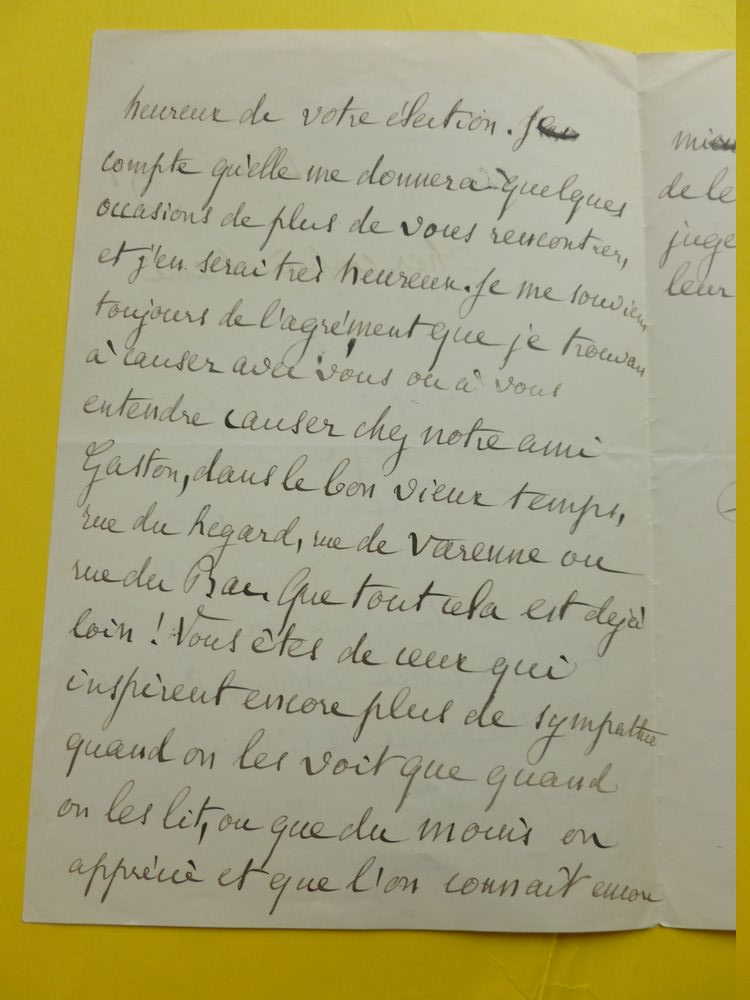 heureux de votre élection. Je
compte qu'elle me donnera quelques
occasions de plus de vous rencontrer,
et j'en serai très heureux. Je me souviens
toujours de l'agrément que je trouvais
à causer avec vous ou à vous
entendre causer chez notre ami
Gaston, dans le bon vieux temps,
rue du Regard, rue de Varenne ou
rue du Bac. Que tout cela est déjà
loin ! Vous êtes de ceux qui
inspirent encore plus de sympathie
quand on les voit que quand
on les lit, ou que du moins on
apprécie et que l'on connaît encore
de le
juge
leur